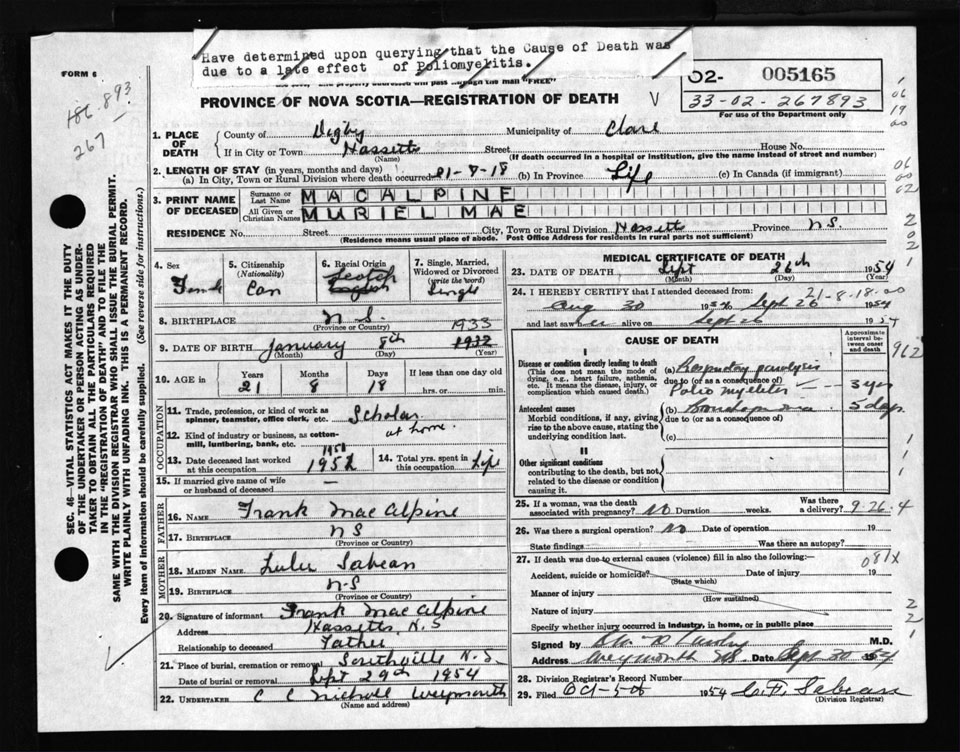 Have determined upon querying that the Cause of Death was
due to a late effect of Poliomyelitis.
FORM 6
186.893
267
O2- 005165
33-02-267893
For use of the Department only
PROVINCE OF NOVA SCOTIA—REGISTRATION OF DEATH
V
1. PLACE OF DEATH County of Digby Municipality of Clare
If in City or Town Hassetts Street House No.
(Name) (If death occurred in a hospital or institution, give the name instead of street and number)
2. LENGTH OF STAY (in years, months and days)
(a) In City, Town or Rural Division where death occurred 21-8-18 (b) In Province Life (c) In Canada (if immigrant)
3. PRINT NAME OF DECEASED Surname or Last Name MACALPINE
All Given or Christian Names MURIEL MAE
RESIDENCE No. Street City, Town or Rural Division Hassett Province N.S.
(Residence means usual place of abode. Post Office Address for residents in rural parts not sufficient)
SEC. 46—VITAL STATISTICS ACT MAKES IT THE DUTY
OF THE UNDERTAKER OR PERSON ACTING AS UNDER-
TAKER TO OBTAIN ALL THE PARTICULARS REQUIRED
IN THE "REGISTRATION OF DEATH" AND TO FILE THE
SAME WITH THE DIVISION REGISTRAR WHO SHALL ISSUE THE BURIAL PERMIT.
WRITE PLAINLY WITH UNFADING INK. THIS IS A PERMANENT RECORD.
Every item of Information should be carefully supplied. (See reverse side for instructions.)
4. Sex Female
5. Citizenship (Nationality) Can
6. Racial Origin Scotch English
7. Single, Married, Widowed or Divorced (write the word) Single
8. BIRTHPLACE N.S.
(Province or Country)
9. DATE OF BIRTH January 8th 1932 1933
(Month) (Day) (Year)
10. AGE in Years Months Days If less than one day old
21 8 18 hrs. or min.
OCCUPATION
11. Trade, profession, or kind of work as spinner, teamster, office clerk, etc. Scholar
12. Kind of industry or business, as cotton-mill, lumbering, bank, etc. at home.
13. Date deceased last worked at this occupation 1951 1952
14. Total yrs. spent in this occupation Life
15. If married give name of wife or husband of deceased —
FATHER
16. NAME Frank MacAlpine
17. BIRTHPLACE N S
(Province or Country)
MOTHER
18. MAIDEN NAME Sabean
19. BIRTHPLACE N-S
(Province or Country)
20. Signature of informant Frank MacAlpine
Address Hassetts N.S
Relationship to deceased Father
21. Place of burial, cremation or removal Southville N.S.
Date of burial or removal Sept 29th 1954
22. UNDERTAKER C C Nicholl Weymouth
(Name and address)
MEDICAL CERTIFICATE OF DEATH
23. DATE OF DEATH Sept 26th 1954
(Month) (Day)
21-8-18.00
24. I HEREBY CERTIFY that I attended deceased from:
Aug 30 1954 Sept 26 1954
and last saw alive on Sept 26 1954
CAUSE OF DEATH
Approximate interval between onset and death
962
I
Disease or condition directly leading to death
(This does not mean the mode of dying, e.g., heart failure, asthenia, etc. It means the disease, injury, or complication which caused death.)
(a) Respiratory paralysis
due to (or as a consequence of)
Poliomyelitis 3 yrs
Antecedent causes
Morbid conditions, if any, giving rise to the above cause, stating the underlying condition last.
(b) 5 days
due to (or as a consequence of)
(c)
II
Other significant conditions
contributing to the death, but not related to the disease or condition causing it.
25. If a woman, was the death associated with pregnancy? No Duration weeks. Was there a delivery? 9-26-4
26. Was there a surgical operation? No Date of operation 19
State findings Was there an autopsy?
27. If death was due to external causes (violence) fill in also the following:— 081X
Accident, suicide or homicide? Date of injury 19
(State which)
Manner of injury
(How sustained)
Nature of injury
Specify whether injury occurred in industry, in home, or in public place
Signed by M.D.
Address Weymouth NS Date Sept 30 1954
28. Division Registrar's Record Number
29. Filed Oct-5th 1954 Sabean
(Division Registrar)